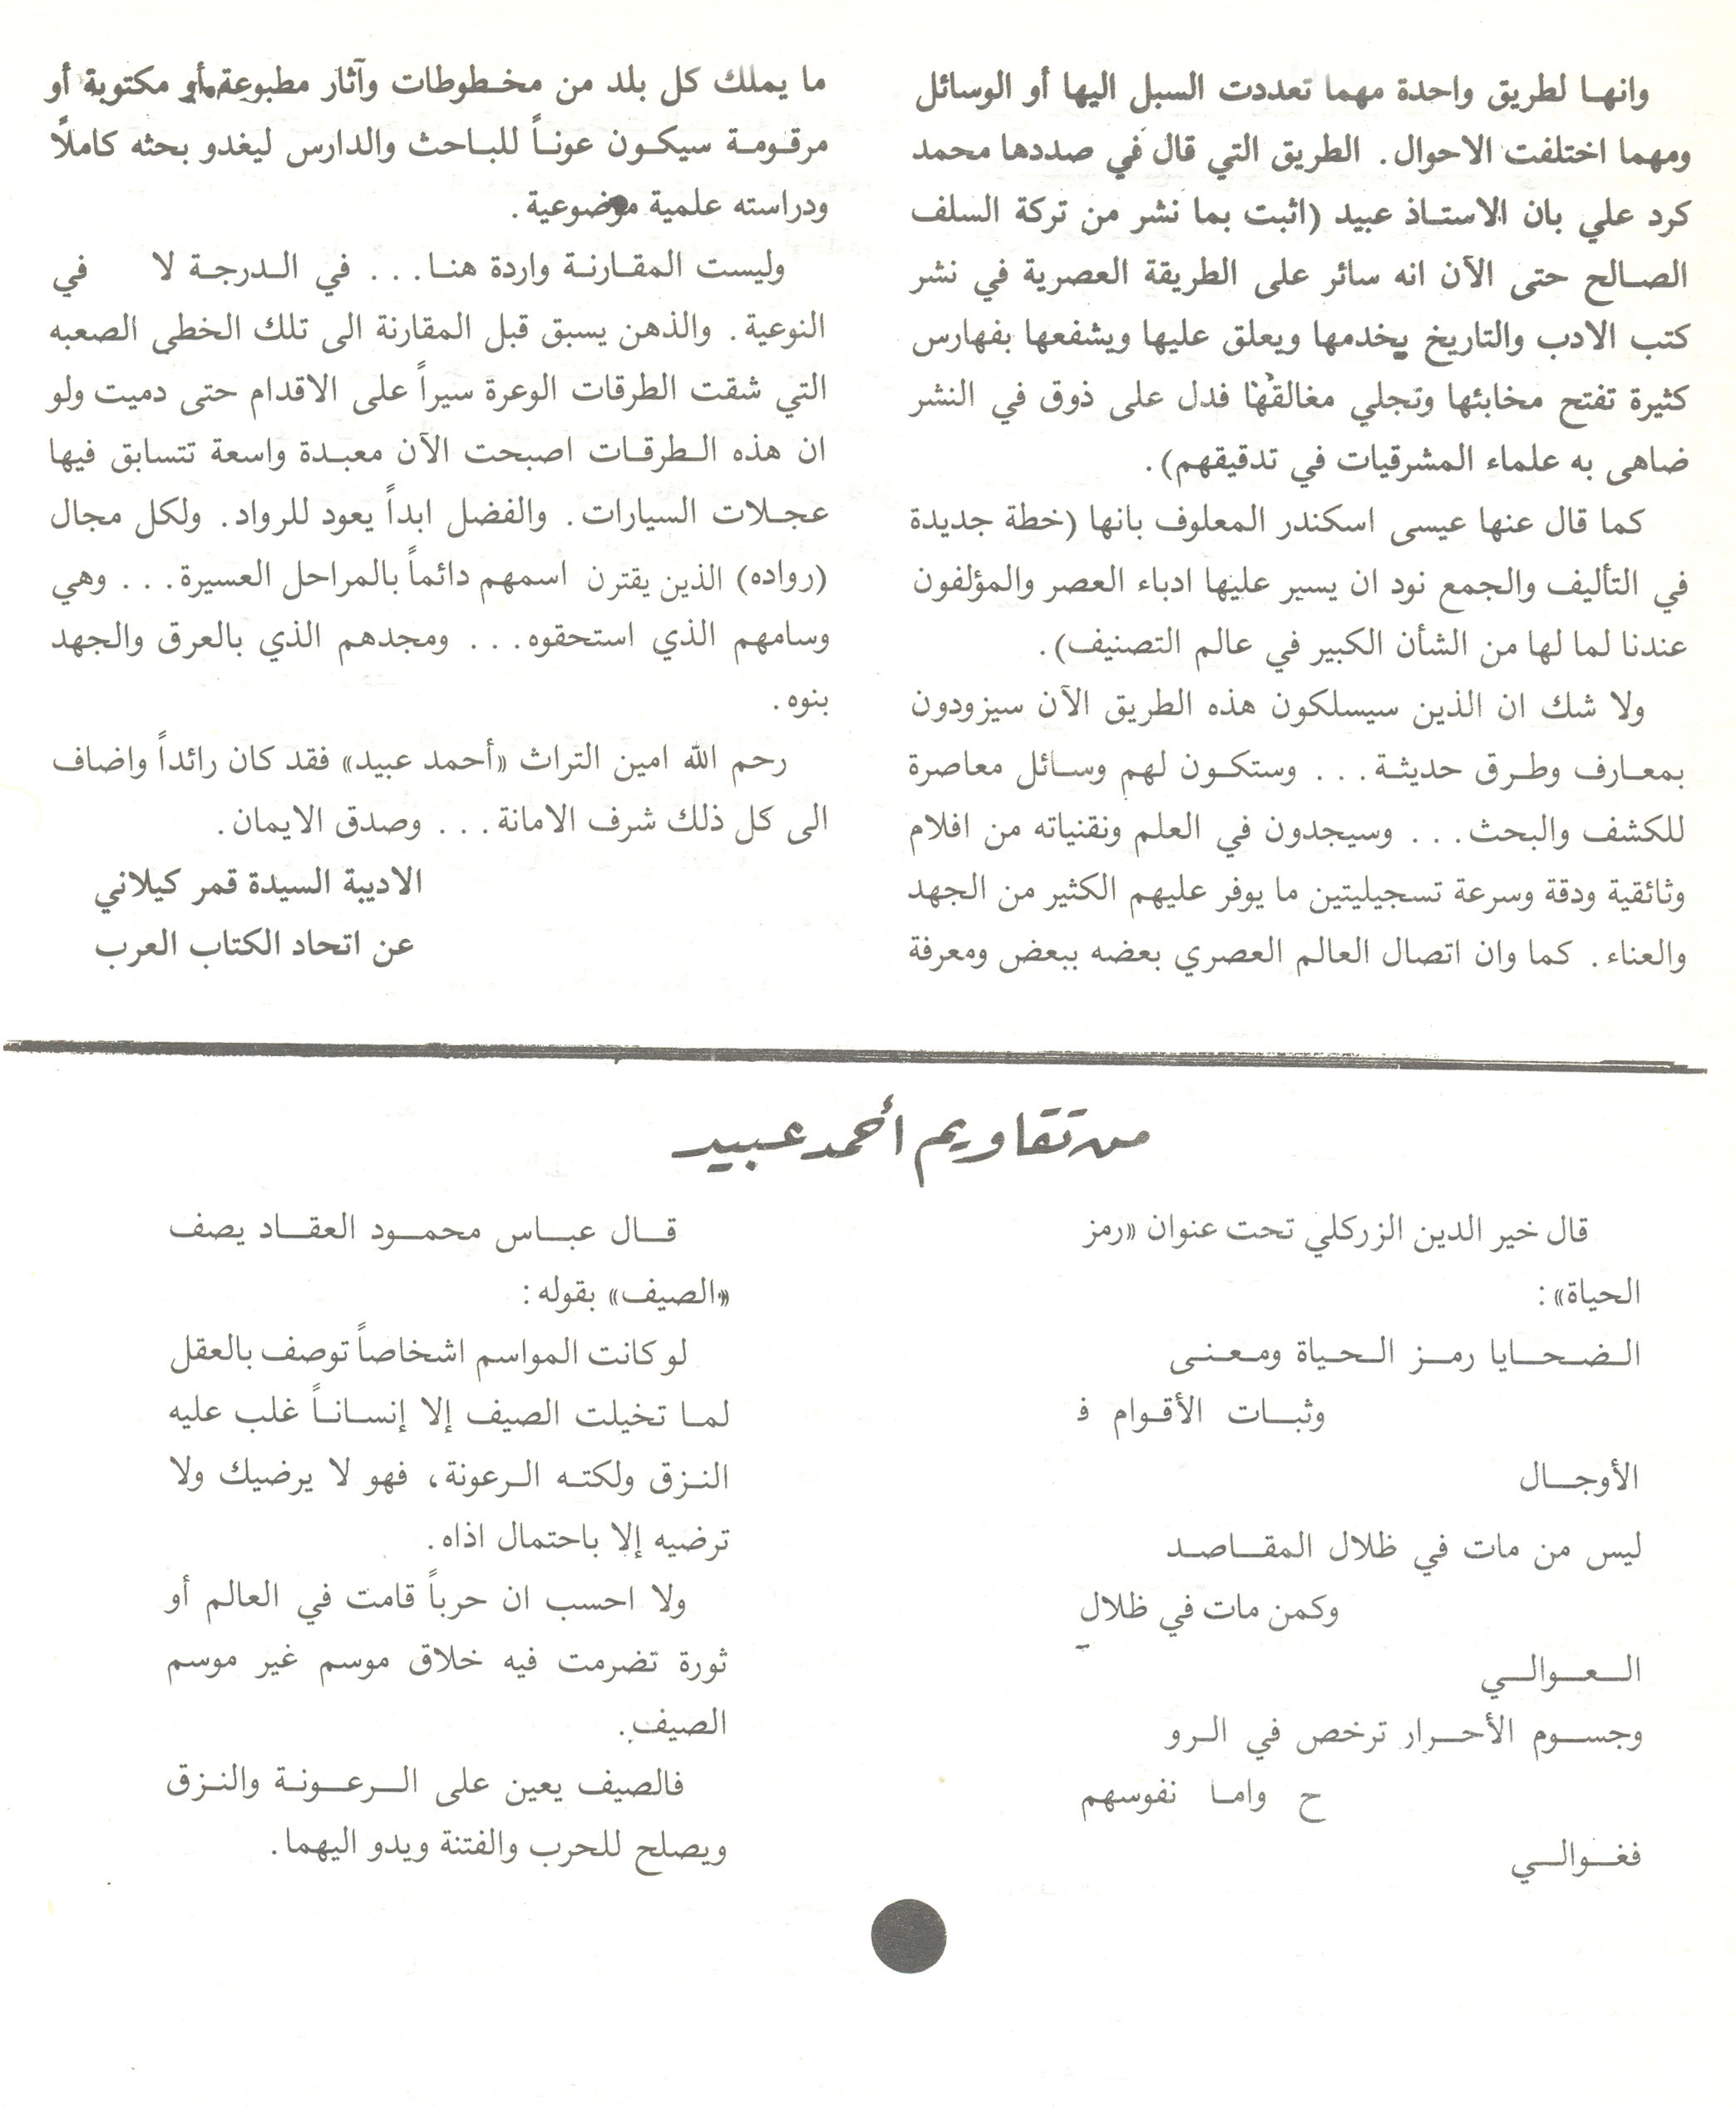 وانها لطريق واحدة مهما تعددت السبل اليها أو الوسائل
ومهما اختلفت الاحوال. الطريق التي قال في صددها محمد
كرد علي بان الاستاذ عبيد (اثبت بما نشر من تركة السلف
الصالح حتى الآن انه سائر على الطريقة العصرية في نشر
كتب الادب والتاريخ يخدمها ويعلق عليها ويشفعها بفهارس
كثيرة تفتح مخابئها وتجلي مغالقها فدل على ذوق في النشر
ضاهى به علماء المشرقيات في تدقيقهم).
كما قال عنها عيسى اسكندر المعلوف بانها (خطة جديدة
في التأليف والجمع نود ان يسير عليها ادباء العصر والمؤلفون
عندنا لما لها من الشأن الكبير في عالم التصنيف).
ولا شك ان الذين سيسلكون هذه الطريق الآن سيزودون
بمعارف وطرق حديثة... وستكون لهم وسائل معاصرة
للكشف والبحث... وسيجدون في العلم ونقنياته من افلام
وثائقية ودقة وسرعة تسجيليتين ما يوفر عليهم الكثير من الجهد
والعناء. كما وان اتصال العالم العصري بعضه ببعض ومعرفة
ما يملك كل بلد من مخطوطات وآثار مطبوعة أو مكتوبة أو
مرقومة سيكون عوناً للباحث والدارس ليغدو بحثه كاملًا
ودراسته علمية موضوعية.
وليست المقارنة واردة هنا... في الدرجة لا في
النوعية. والذهن يسبق قبل المقارنة الى تلك الخطى الصعبه
التي شقت الطرقات الوعرة سيراً على الاقدام حتى دميت ولو
ان هذه الطرقات اصبحت الآن معبدة واسعة تتسابق فيها
عجلات السيارات. والفضل ابداً يعود للرواد. ولكل مجال
(رواده) الذين يقترن اسمهم دائماً بالمراحل العسيرة... وهي
وسامهم الذي استحقوه... ومجدهم الذي بالعرق والجهد
بنوه.
رحم الله امين التراث «أحمد عبيد» فقد كان رائداً واضاف
الى كل ذلك شرف الامانة... وصدق الايمان.
الاديبة السيدة قمر كيلاني
عن اتحاد الكتاب العرب
من تقاويم أحمد عبيد
قال خير الدين الزركلي تحت عنوان «رمز
الحياة»:
الضحايا رمز الحياة ومعنى
وثبات الأقوام ف
الأوجال
ليس من مات في ظلال المقاصد
وكمن مات في ظلال
العوالي
وجسوم الأحرار ترخص في الرو
ح واما نفوسهم
فغوالي
قال عباس محمود العقاد يصف
«الصيف» بقوله:
لو كانت المواسم اشخاصاً توصف بالعقل
لما تخيلت الصيف إلا إنساناً غلب عليه
النزق ولكته الرعونة، فهو لا يرضيك ولا
ترضيه إلا باحتمال اذاه.
ولا احسب ان حرباً قامت في العالم أو
ثورة تضرمت فيه خلاق موسم غير موسم
الصيف.
فالصيف يعين على الرعونة والنزق
ويصلح للحرب والفتنة ويدو اليهما.